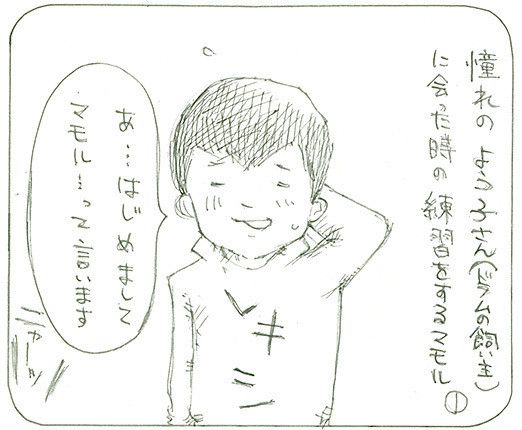 憧れの よう子さん(ドラムの飼い主)
に会った時の練習をするマモル
①
あ…はじめまして
マモル…って言います
ニャーッ